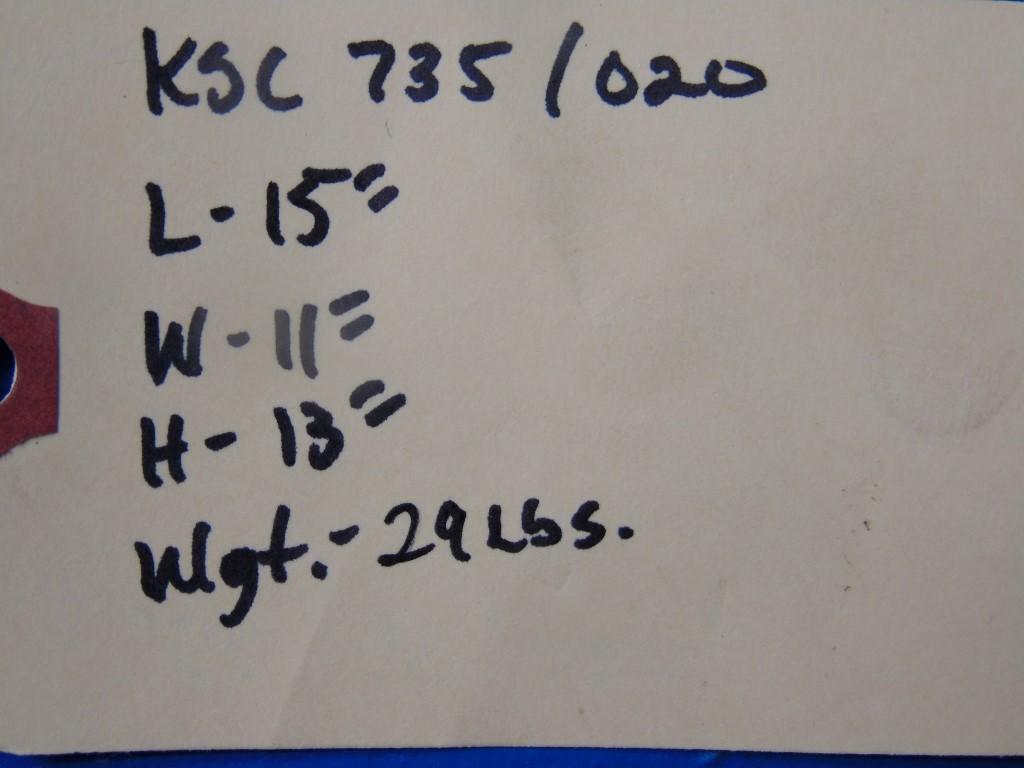 KSC 735/020
L-15"
W-11"
H-13"
Wgt.-29Lbs.